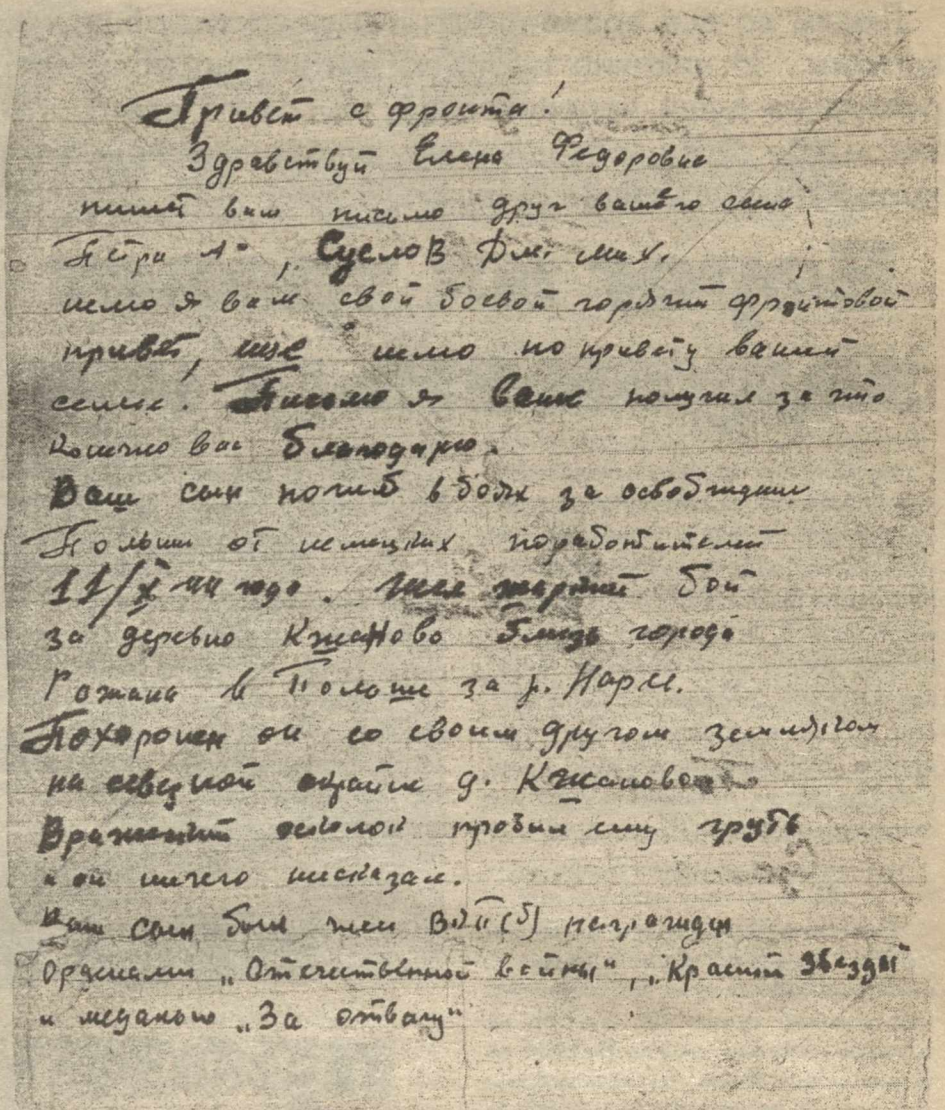 Привет с фронта!
Здравствуй Елена Федоровна
пишет вам письмо друг вашего сына
Петра А-, Суслов Дм. Мих.
шлю я вам свой боевой горячий фронтовой
привет, еще шлю по привету вашей
семье. Письмо я ваше получил за что
конечно вас благодарю.
Ваш сын погиб в боях за освобждение
Польши от немецких поработителей
11/X 44 года. Шел жаркий бой
за деревню Кжаново близь города
Рожана в Польше за р. Нарев.
Похоронен он со своим другом земляком
на северной окраине д. Кжаново
Вражеский осколок пробил ему грудь
и он ничего несказал.
Ваш сын был член ВКП(б) награжден
Орденами „Отечественной войны", „Красной Звезды"
и медалью „За отвагу"